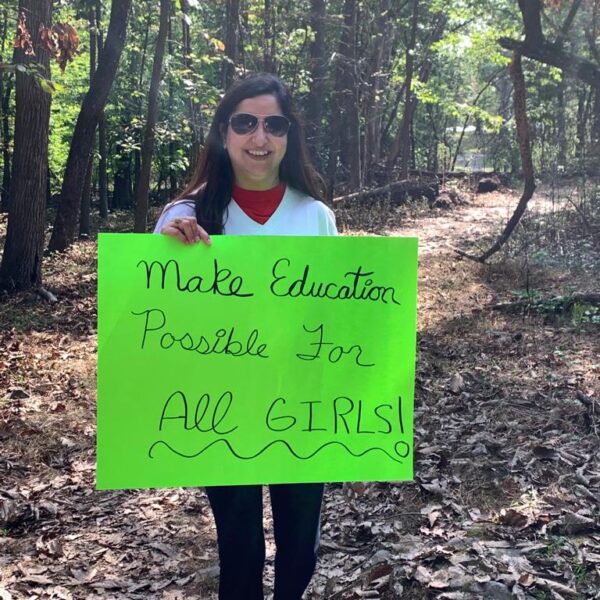 Make Education
Possible For
All GIRLS!